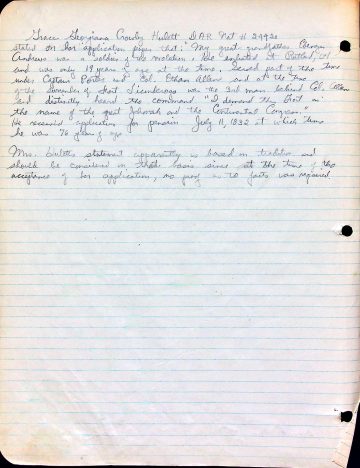 Grace Georgiana Crowley Hulett D.A.R. Nat # 29921
stated on her application paper that: "My great grandfather
Andrews was a soldier of the revolution, He enlisted at Rutland, Vt
and was only 19 years of age at the time. Served part of the time
under Captain Porter and Col. Ethan Allen and at the time
of the surrender of Fort Ticonderoga was the 3rd man behind Col. Allen
and distinctly heard the command, "I demand the Fort in
the name of the great Jehovah and the Continental Congress."
He received application for pension July 11, 1832 at which time
he was 76 years of age.
Mrs. Huletts statement apparently is based on tradition and
should be considered on that basis since at the time of the
acceptance of her application, no proof as to facts was required.